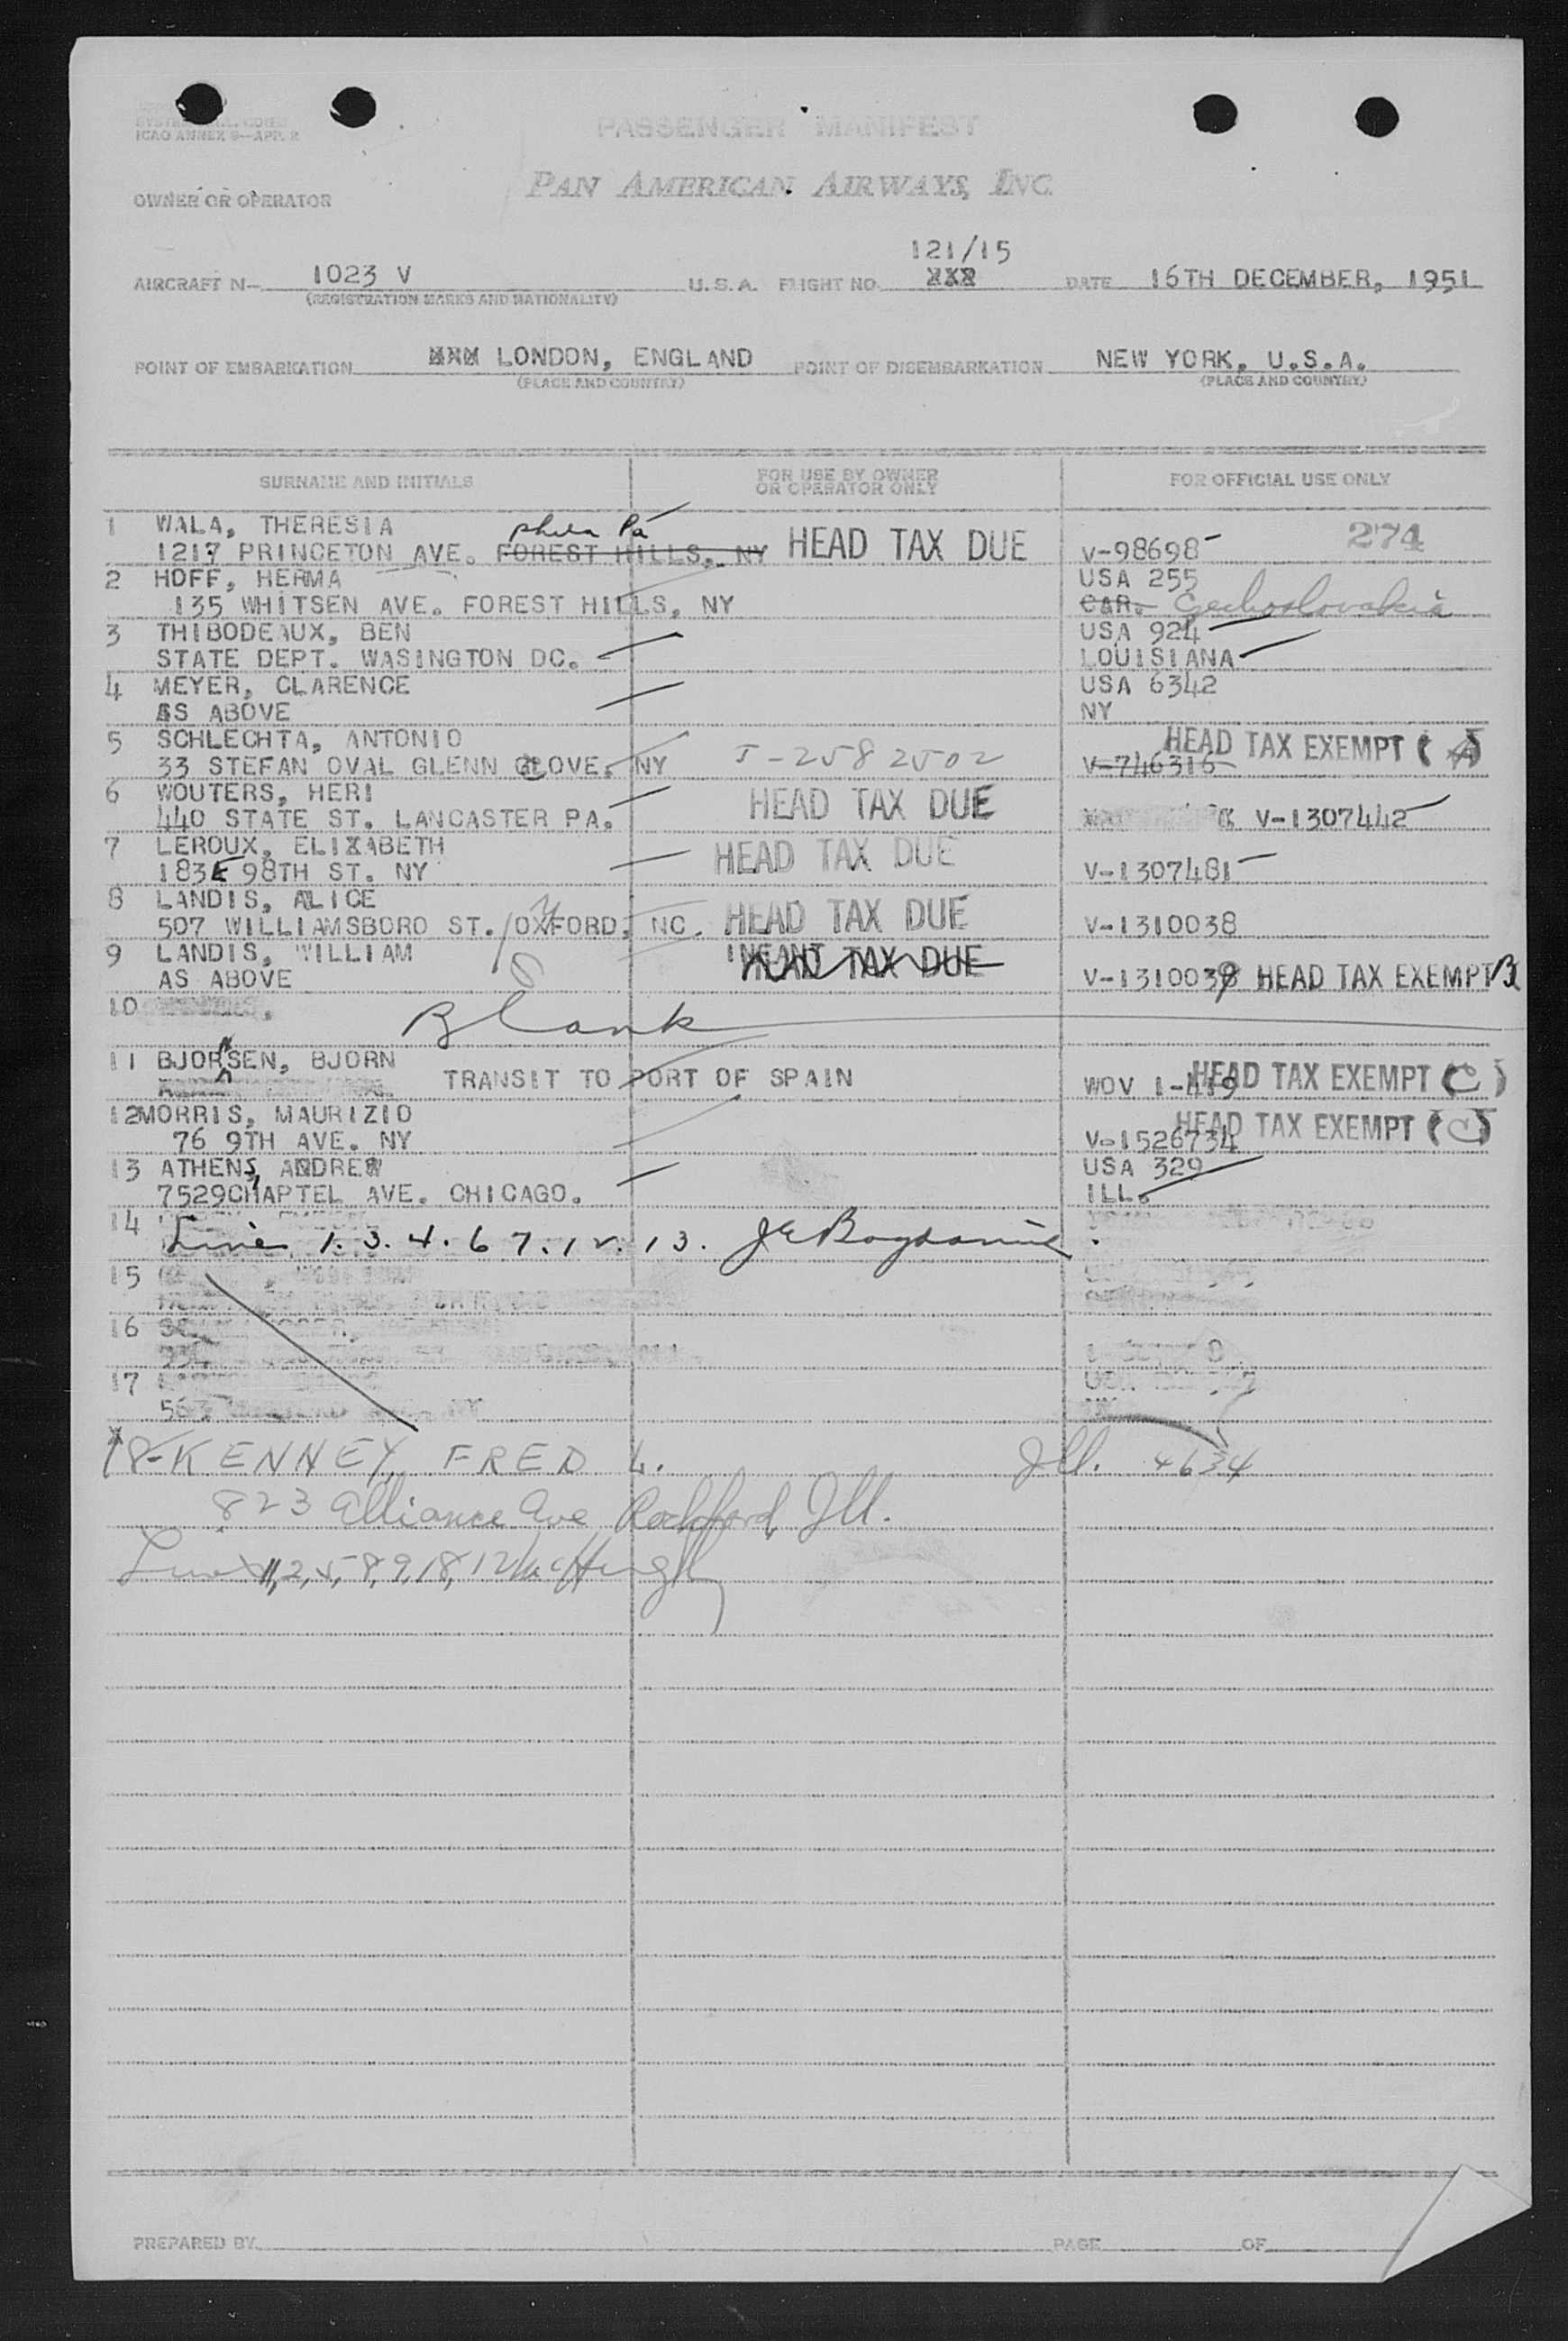 ICAO ANNEX 9—APP. 2
PASSENGER MANIFEST
PAN AMERICAN AIRWAYS, INC.
OWNER OR OPERATOR
121/15
AIRCRAFT N— 1023 V U.S.A. FLIGHT NO. XXX DATE 16TH DECEMBER, 1951
(REGISTRATION MARKS AND NATIONALITY)
POINT OF EMBARKATION LONDON, ENGLAND POINT OF DISEMBARKATION NEW YORK, U.S.A.
(PLACE AND COUNTRY) (PLACE AND COUNTRY)
SURNAME AND INITIALS FOR USE BY OWNER OR OPERATOR ONLY FOR OFFICIAL USE ONLY
1 WALA, THERESIA Phila Pa 274
1217 PRINCETON AVE. FOREST HILLS, NY HEAD TAX DUE V-98698
2 HOFF, HERMA USA 255
135 WHITSEN AVE. FOREST HILLS, NY CAR. Czechoslovakia
3 THIBODEAUX, BEN USA 924
STATE DEPT. WASINGTON DC. LOUISIANA
4 MEYER, CLARENCE USA 6342
AS ABOVE NY
5 SCHLECHTA, ANTONIO HEAD TAX EXEMPT (A)
33 STEFAN OVAL GLENN CLOVE, NY J-2582502 V-746316
6 WOUTERS, HERI HEAD TAX DUE
440 STATE ST. LANCASTER PA. V-1307442
7 LEROUX, ELIZABETH HEAD TAX DUE
183 E 98TH ST. NY V-1307481
8 LANDIS, ALICE HEAD TAX DUE
507 WILLIAMSBORO ST. OXFORD, NC. V-1310038
9 LANDIS, WILLIAM INFANT HEAD TAX DUE
AS ABOVE V-1310039 HEAD TAX EXEMPT B
10 Blank
11 BJORNSEN, BJORN HEAD TAX EXEMPT (C)
TRANSIT TO PORT OF SPAIN WOV 1-419
12 MORRIS, MAURIZIO HEAD TAX EXEMPT (C)
76 9TH AVE. NY V-1526734
13 ATHENS, ANDREW USA 329
7529 CHAPTEL AVE. CHICAGO. ILL.
14 Lines 1. 3. 4. 6 7. 12. 13.
15
16
17
18- KENNEY, FRED L. Ill. 4634
823 Alliance Ave Rockford, Ill.
Lines 11, 2, 5, 8, 9, 18, 12 McHugh
PREPARED BY PAGE OF